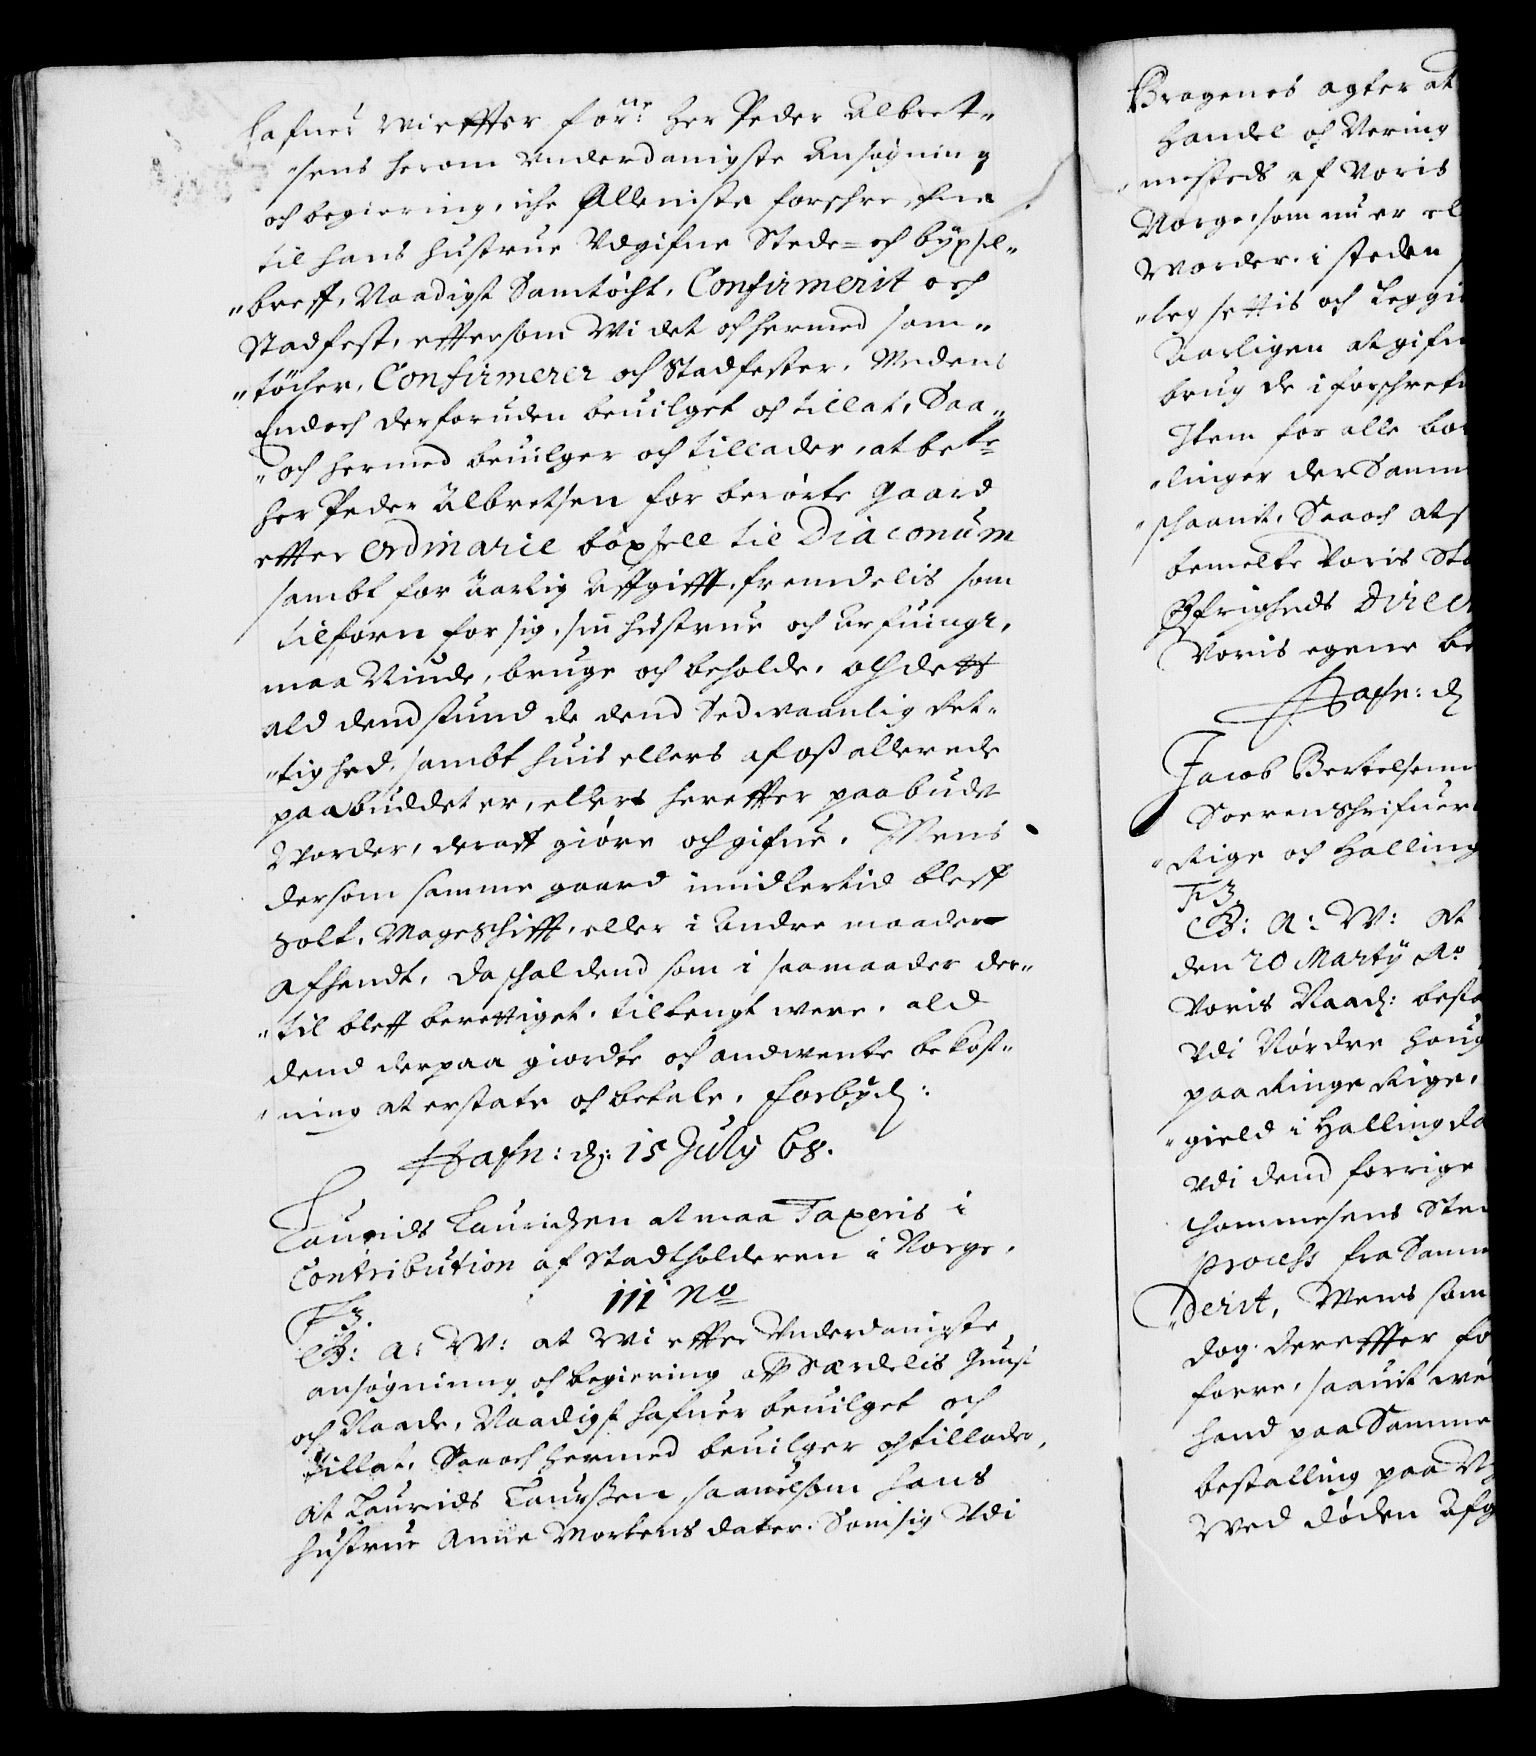 hafuer wi effter forne her Peder Albret-
sens herom underdanigste Ansøgning
och begiering, iche Alleniste forschrefne
til hans hustrue Udgifne Stede- och byxsel-
breff, Naadigst Samtöcht, Confirmerit och
Stadfest, efftersom Wi det och hermed sam-
töcher, Confirmerer och Stadfester, Medens
Endoch derforuden beuilget och tillat, Saa
och hermed beuilger och tillader, at bete
her Peder Albretsen for berörte gaard
effter Ordinarie böxsell til Diaconum
sambt for Aarlig Affgifft, fremdelis som
tilforn for sig, sin hustrue och Arfuinger,
maa Niude, bruge och beholde, och dett
ald dend stund de dend Sedwaanlig Ret-
tighed, sambt huis ellers af oss allerede
paabuddet er, eller hereffter paabudet
Worder, deraff giöre och gifue. Mens
dersom samme gaard imidlertid bleff
Solt, Mageschifft, eller i Andre maader
Afhendt, da schal dend som i saa maader der-
til bleff berettiget, tiltengt were, ald
dend derpaa giordte och anwente bekost-
ning at erstate och betale. Forbyd:
Hafn: d: 15 July 68.
Laurids Lauridsen at maa Taxeris i
Contribution af Stadtholderen i Norge.
111 No
F3.
G: A: W: at Wi effter Underdanigste
ansøgning och begiering aff Særdelis Gunst
och Naade, Naadigst hafuer beuilget och
tillat, Saa och hermed beuilger och tillader,
At Laurids Laurssen, saauelsom hans
hustrue Anne Mortens dater, Som sig Udi
Bragenes agter at
Handel och Nering
mesteds af Voris
Norge, som nu er el
Worder, i steden
leg settis och legge
Aarligen at gifu
brug de i forschrefn
Item for alle
linger der Samm
schaant, Saa och at
bemelte Voris Sta
Öfrigheds Direct
Voris egene be
Hafn: d
Jacob Bertelsenn
Sorenschrifuer
Rige och Halling
F3.
G: A: W: At
den 20 Martij Ao
Voris Naad: besta
Udi Nördre houg
paa Ringe Rige,
gield i Hallingda
Udi dend forrige
Hommesens Sted
Process fra Samm
derit, Mens som
dog dereffter fo
forre, saauit we
hand paa Samme
bestalling paa N
Wed döden Afg